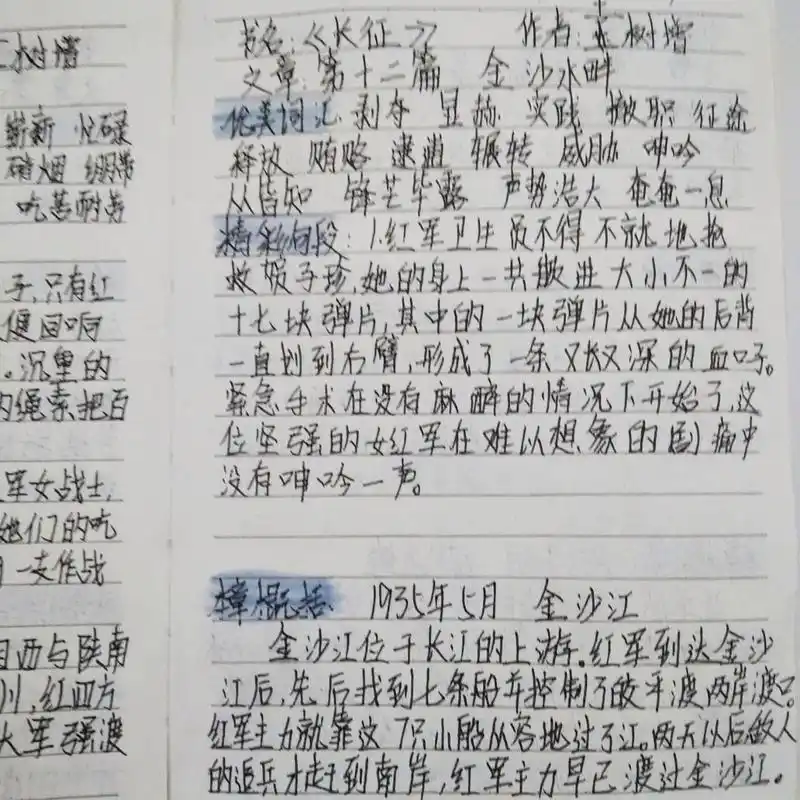 树增
崭新 忙碌
硝烟 绷带
吃苦耐劳
子,只有红
便回响
。沉重的
的绳索把百
军女战士,
她们的吃
一支作战
西与陕南
川,红四方
大军强渡
书名:《长征》 作者:王树增
文章:第十二篇 金沙水畔
优美词汇 剥夺 显赫 实践 撤职 征途
释放 贿赂 逮逋 辗转 威胁 呻吟
从皆知 锋芒毕露 声势浩大 奄奄一息
精彩句段: 1.红军卫生员不得不就地抢
救贺子珍,她的身上一共嵌进大小不一的
十七块弹片,其中的一块弹片从她的后背
一直划到右臂,形成了一条又长又深的血口子。
紧急手术在没有麻醉的情况下开始了,这
位坚强的女红军在难以想象的剧痛中
没有呻吟一声。
概括 1935年5月 金沙江
金沙江位于长江的上游。红军到达金沙
江后,先后找到七条船并控制了皎平渡两岸渡口。
红军主力就靠这7只小船从容地过了江。两天以后敌人
的追兵才赶到南岸,红军主力早已渡过金沙江。